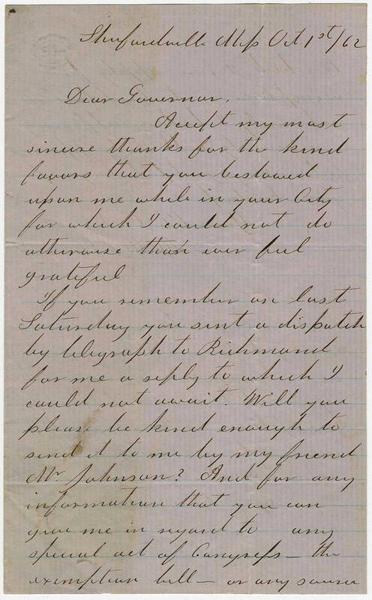 Shufordville Miss Oct 1st/62
Dear Governor,
Accept my most
sincere thanks for the kind
favors that you bestowed
upon me while in your City
for which I could not do
otherwise than ever feel
grateful
If you remember on last
Saturday you sent a dispatch
by telegraph to Richmond
for me a reply to which I
could not await. Will you
please be kind enough to
send it to me by my friend
Mr Johnson? And for any
information that you can
give me in regard to any
special act of Congress – the
exemption bill – or any source